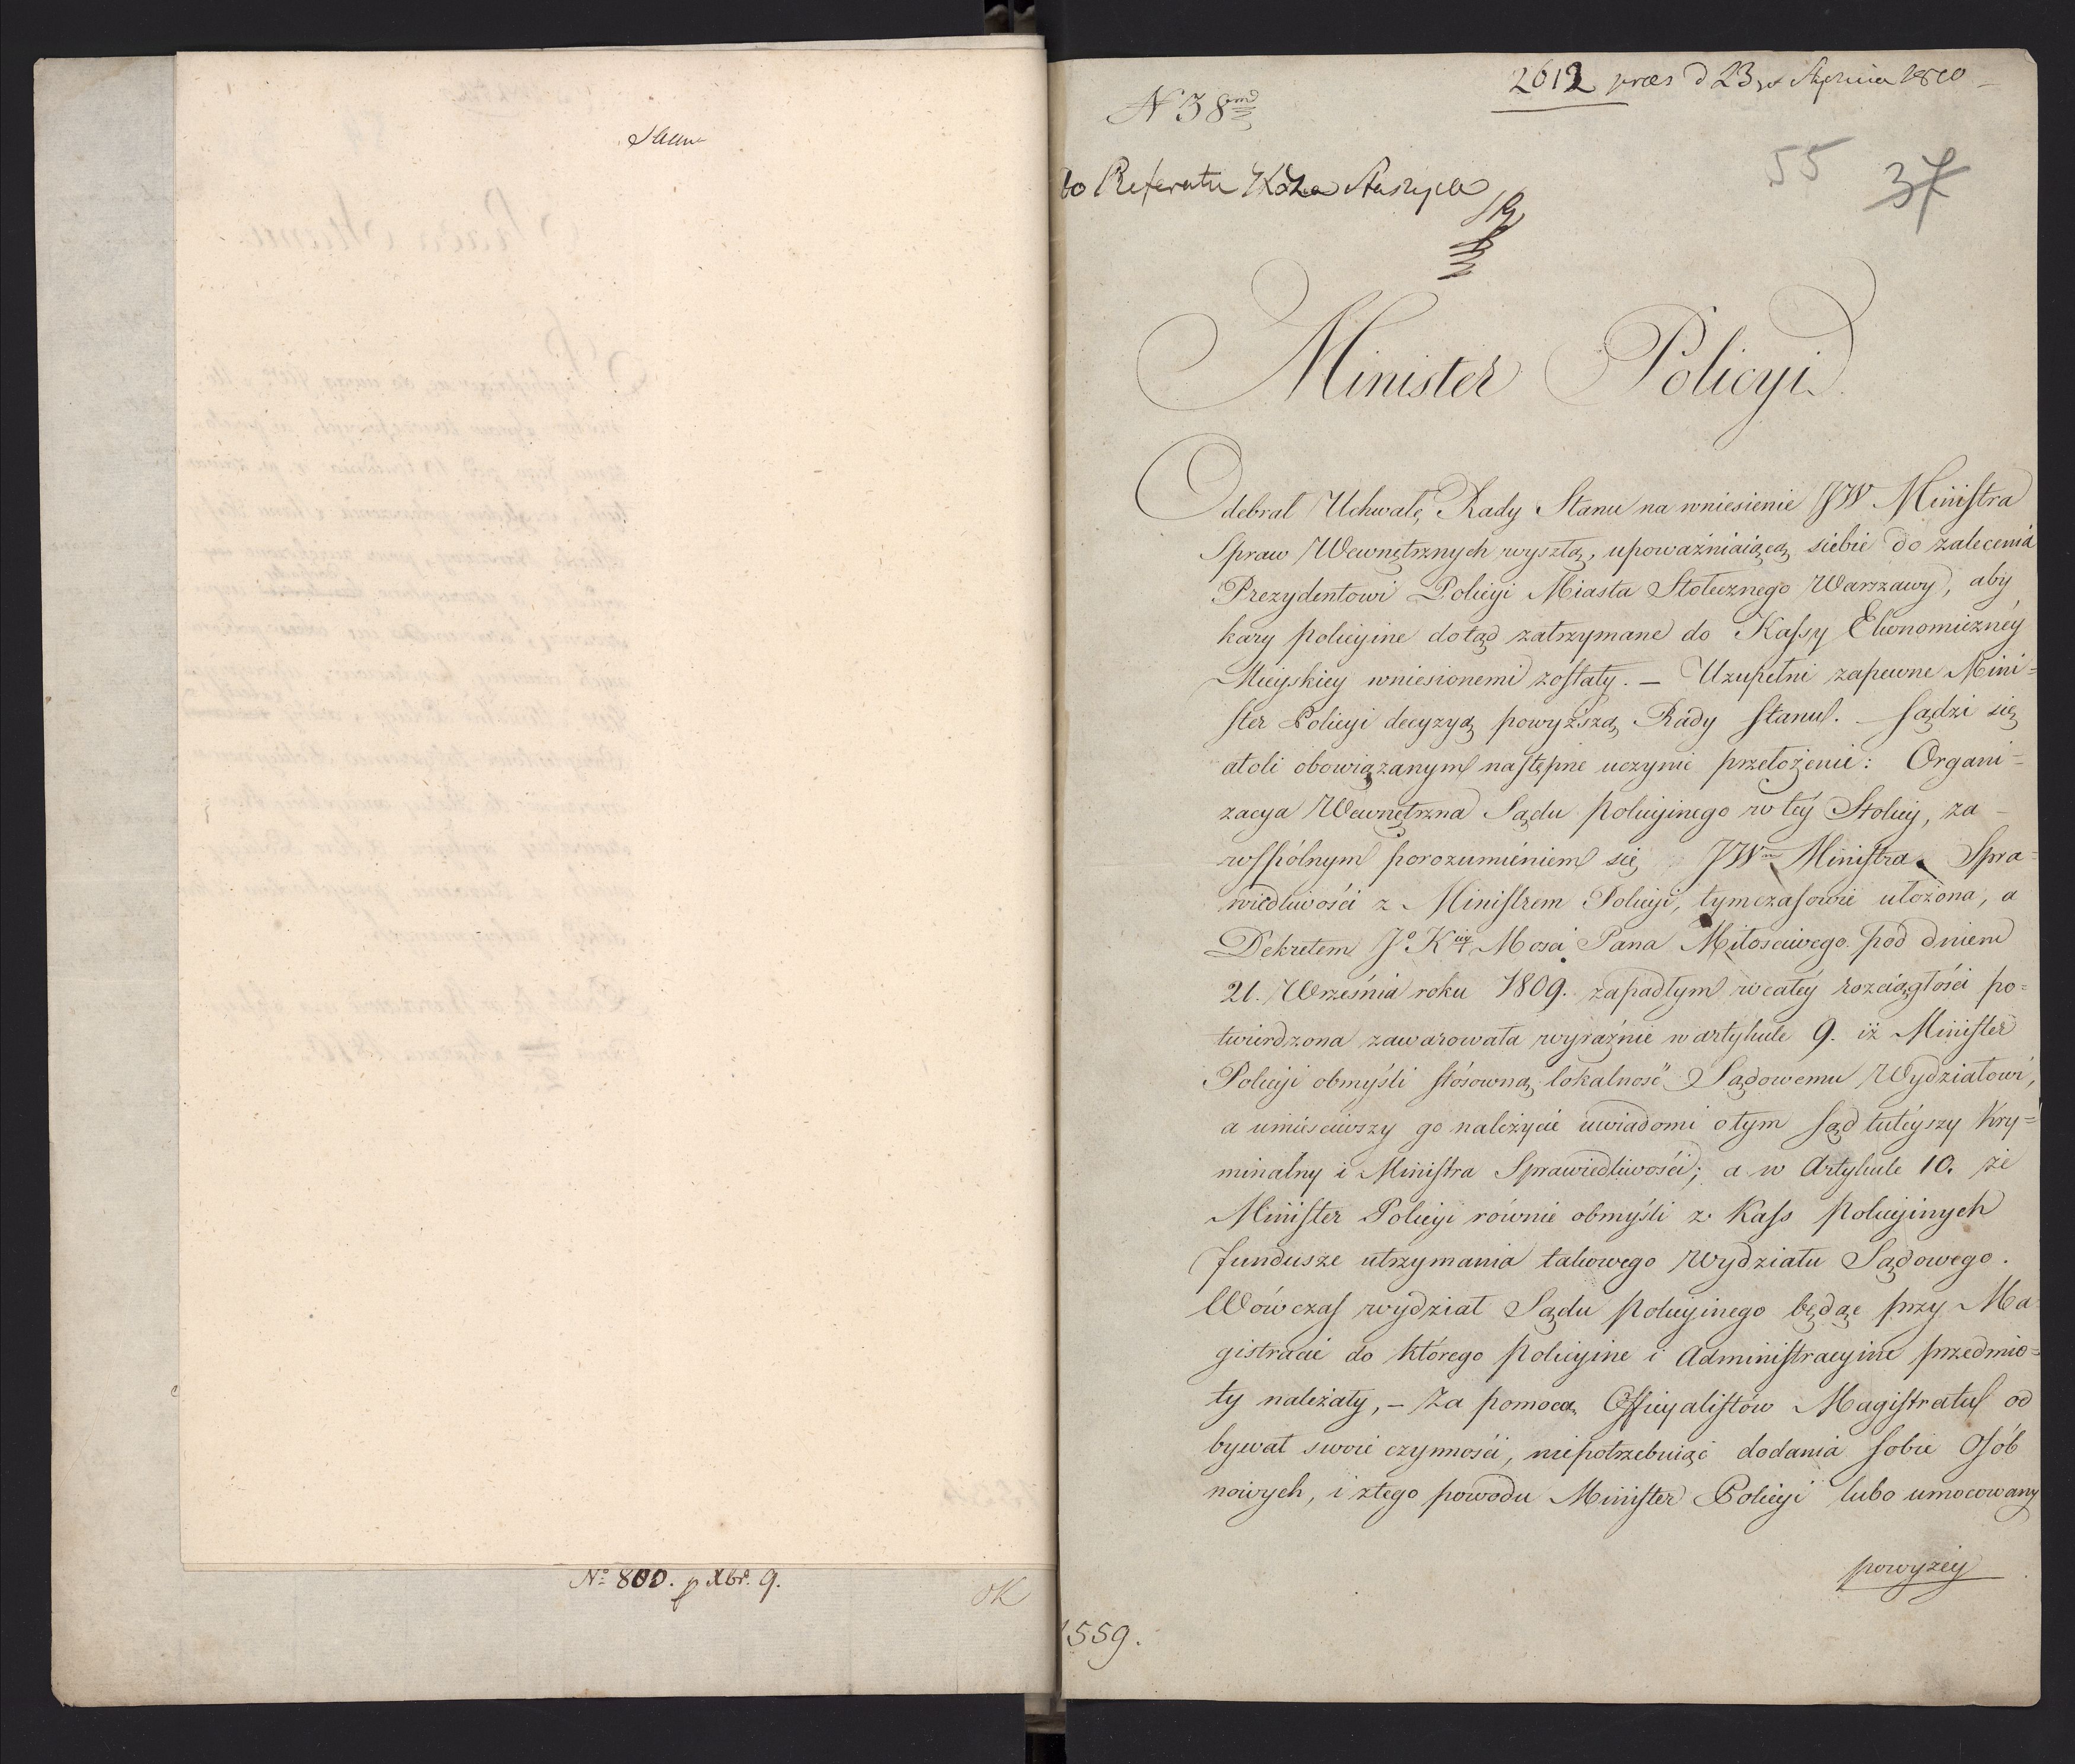 Stanu
No 800. p Xbr. 9.
OK
2612 præs d 23 go Stycznia 1810
N 38
55
37
do Referatu Xdza Staszyca
Minister Policyi
Odebrał Uchwałę Rady Stanu na wniesienie JW Ministra
Spraw Wewnętrznych wyszłą, upoważniaiącą siebie do zalecenia
Prezydentowi Policyi Miasta Stołecznego Warszawy, aby
kary policyine dotąd zatrzymane do Kassy Ekonomiczney
Mieyskiey wniesionemi zostały. – Uzupełni zapewne Mini=
ster Policyi decyzyą powyższą Rady Stanu. – Sądzi się
atoli obowiązanym następne uczynić przełożenie: Organi=
zacya Wewnętrzna Sądu Policyinego w tey Stolicy, za –
wspólnym porozumieniem się JWo Ministra Spra=
wiedliwości z Ministrem Policyi, tymczasowie ułożona, a
Dekretem Jo Kiey Mosci Pana Miłosciwego pod dniem
21. Września roku 1809. zapadłym w całey rozciągłości po=
twierdzona zawarowała wyraźnie w artykule 9. iż Minister
Policyi obmyśli stósowną lokalność Sądowemu Wydziałowi,
a umieściwszy go należycie uwiadomi o tym Sąd tuteyszy Kry=
minalny i Ministra Sprawiedliwości; a w Artykule 10. że
Minister Policyi równie obmyśli z Kass Policyinych
fundusze utrzymania takowego Wydziału Sądowego.
Wówczas wydział Sądu Policyinego będąc przy Ma
gistracie do którego Policyine i Administracyine przedmio=
ty należały, – za pomocą Officyalistów Magistratu od
bywał swoie czynności, niepotrzebuiąc dodania sobie Osób
nowych, i z tego powodu Minister Policyi lubo umocowany
powyżey
1559.